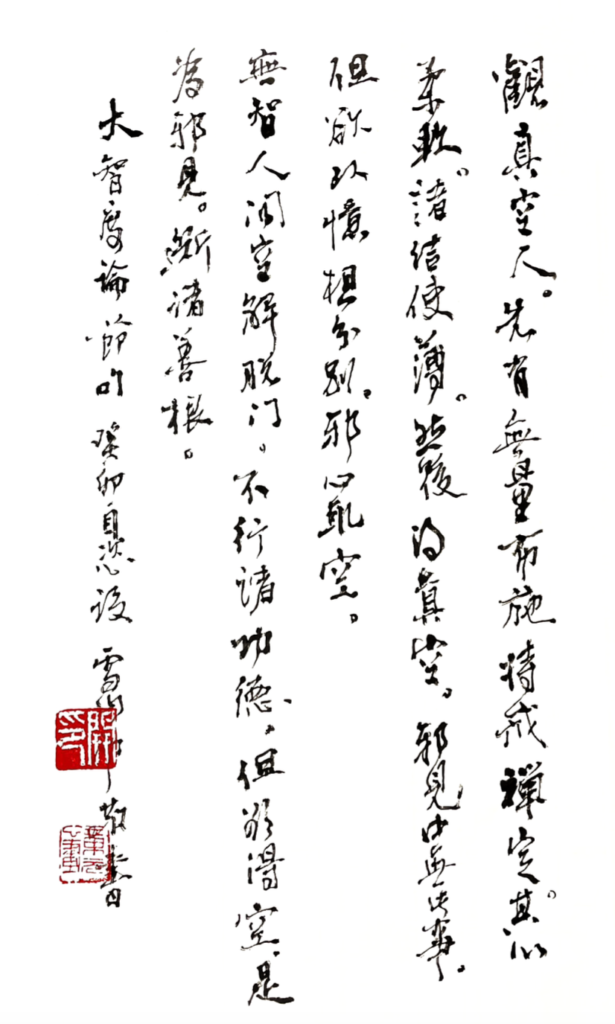 觀真空人。先有無量布施持戒禪定。其心
柔軟。諸結使薄。然後得真空。邪見中無此事。
但欲以憶想分別。邪心取空。
無智人聞空解脫門。不行諸功德。但欲得空。是
為邪見。斷諸善根。
大智度論節吟 癸卯自恣後 雪 敬書
開印